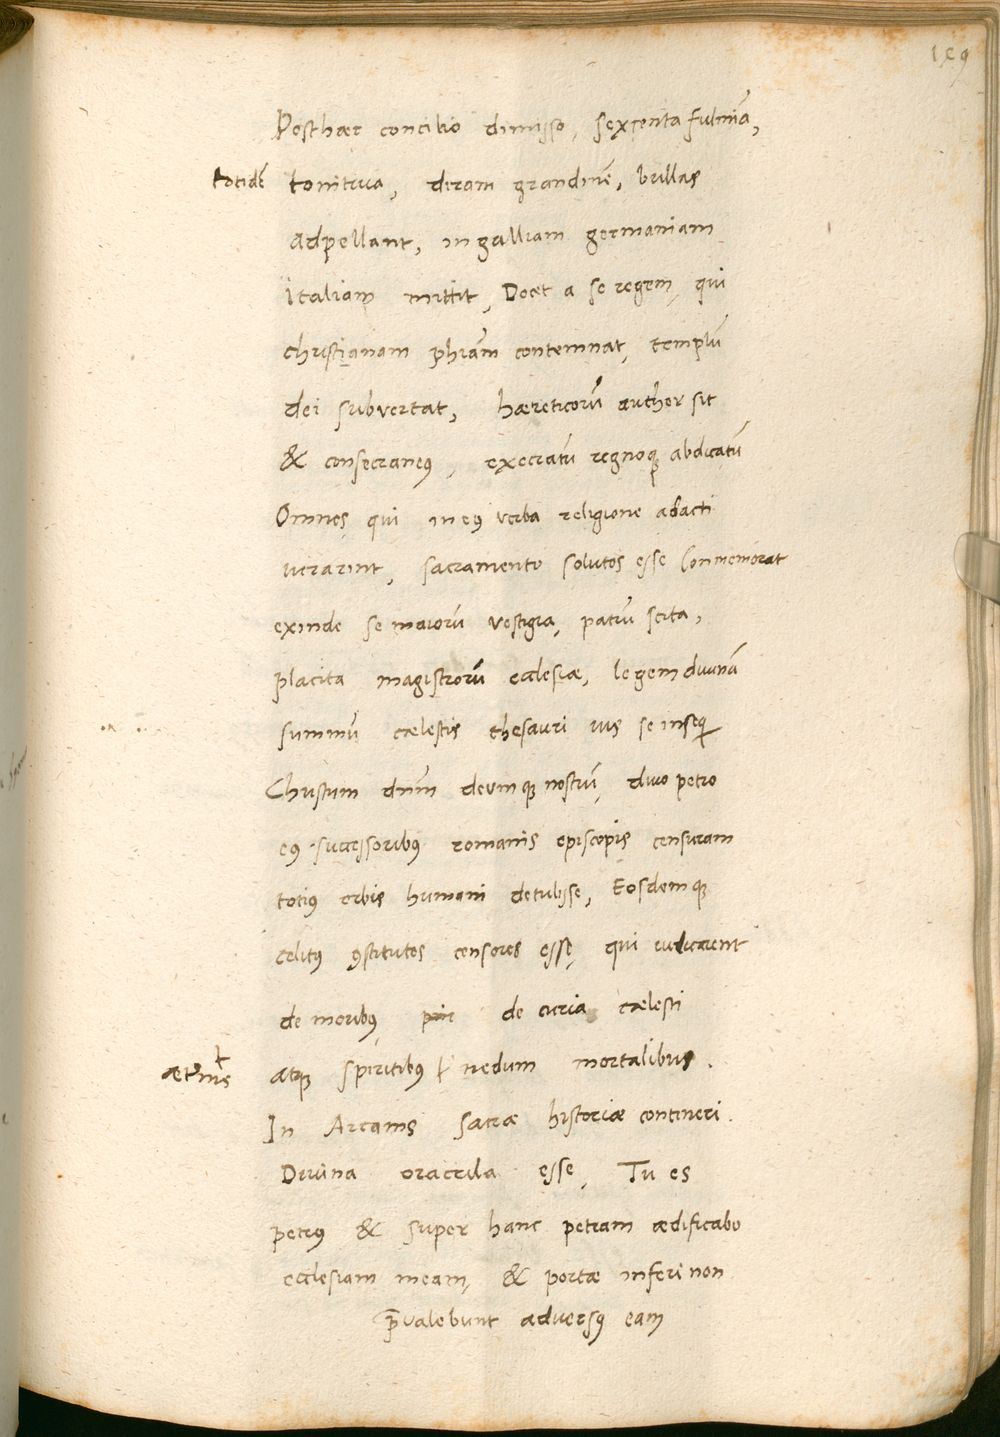 169
Posthæc concilio dimisso, sexcenta fulmīa,
totidē tonitrua, diram grandinē, bullas
adpellant, in galliam germaniam
italiam mittit, Docet a se regem, qui
christianam phiām contemnat, templū
dei subvertat, hæreticorū author sit
& consecraneꝰ, execratū regnoqꝫ abdicatū
Omnes qui in eiꝰ verba religione adacti
iurarint, sacramento solutos esse Conmemorat
exinde se maiorū vestigia, patrū scita,
placita magistrorū ecclesiæ, legem diuinā
summū cælestis thesauri ius se inseqi
Christum dnm̄ deumqꝫ nostrū, diuo petro
eiꝰ successoribꝰ romanis episcopis censuram
totiꝰ orbis humani detulisse, Eosdemqꝫ
celitꝰ ꝯstitutos censores esse, qui iudicarent
de moribꝰ, de curia cælesti
atqꝫ spiritibꝰ ł nedum mortalibus.
æt'nis
In Arcanis sacræ historiæ contineri.
Diuina oracula esse, Tu es
petrꝰ & super hanc petram ædificabo
ecclesiam meam, & portæ inferi non
p̄valebunt adversꝰ eam